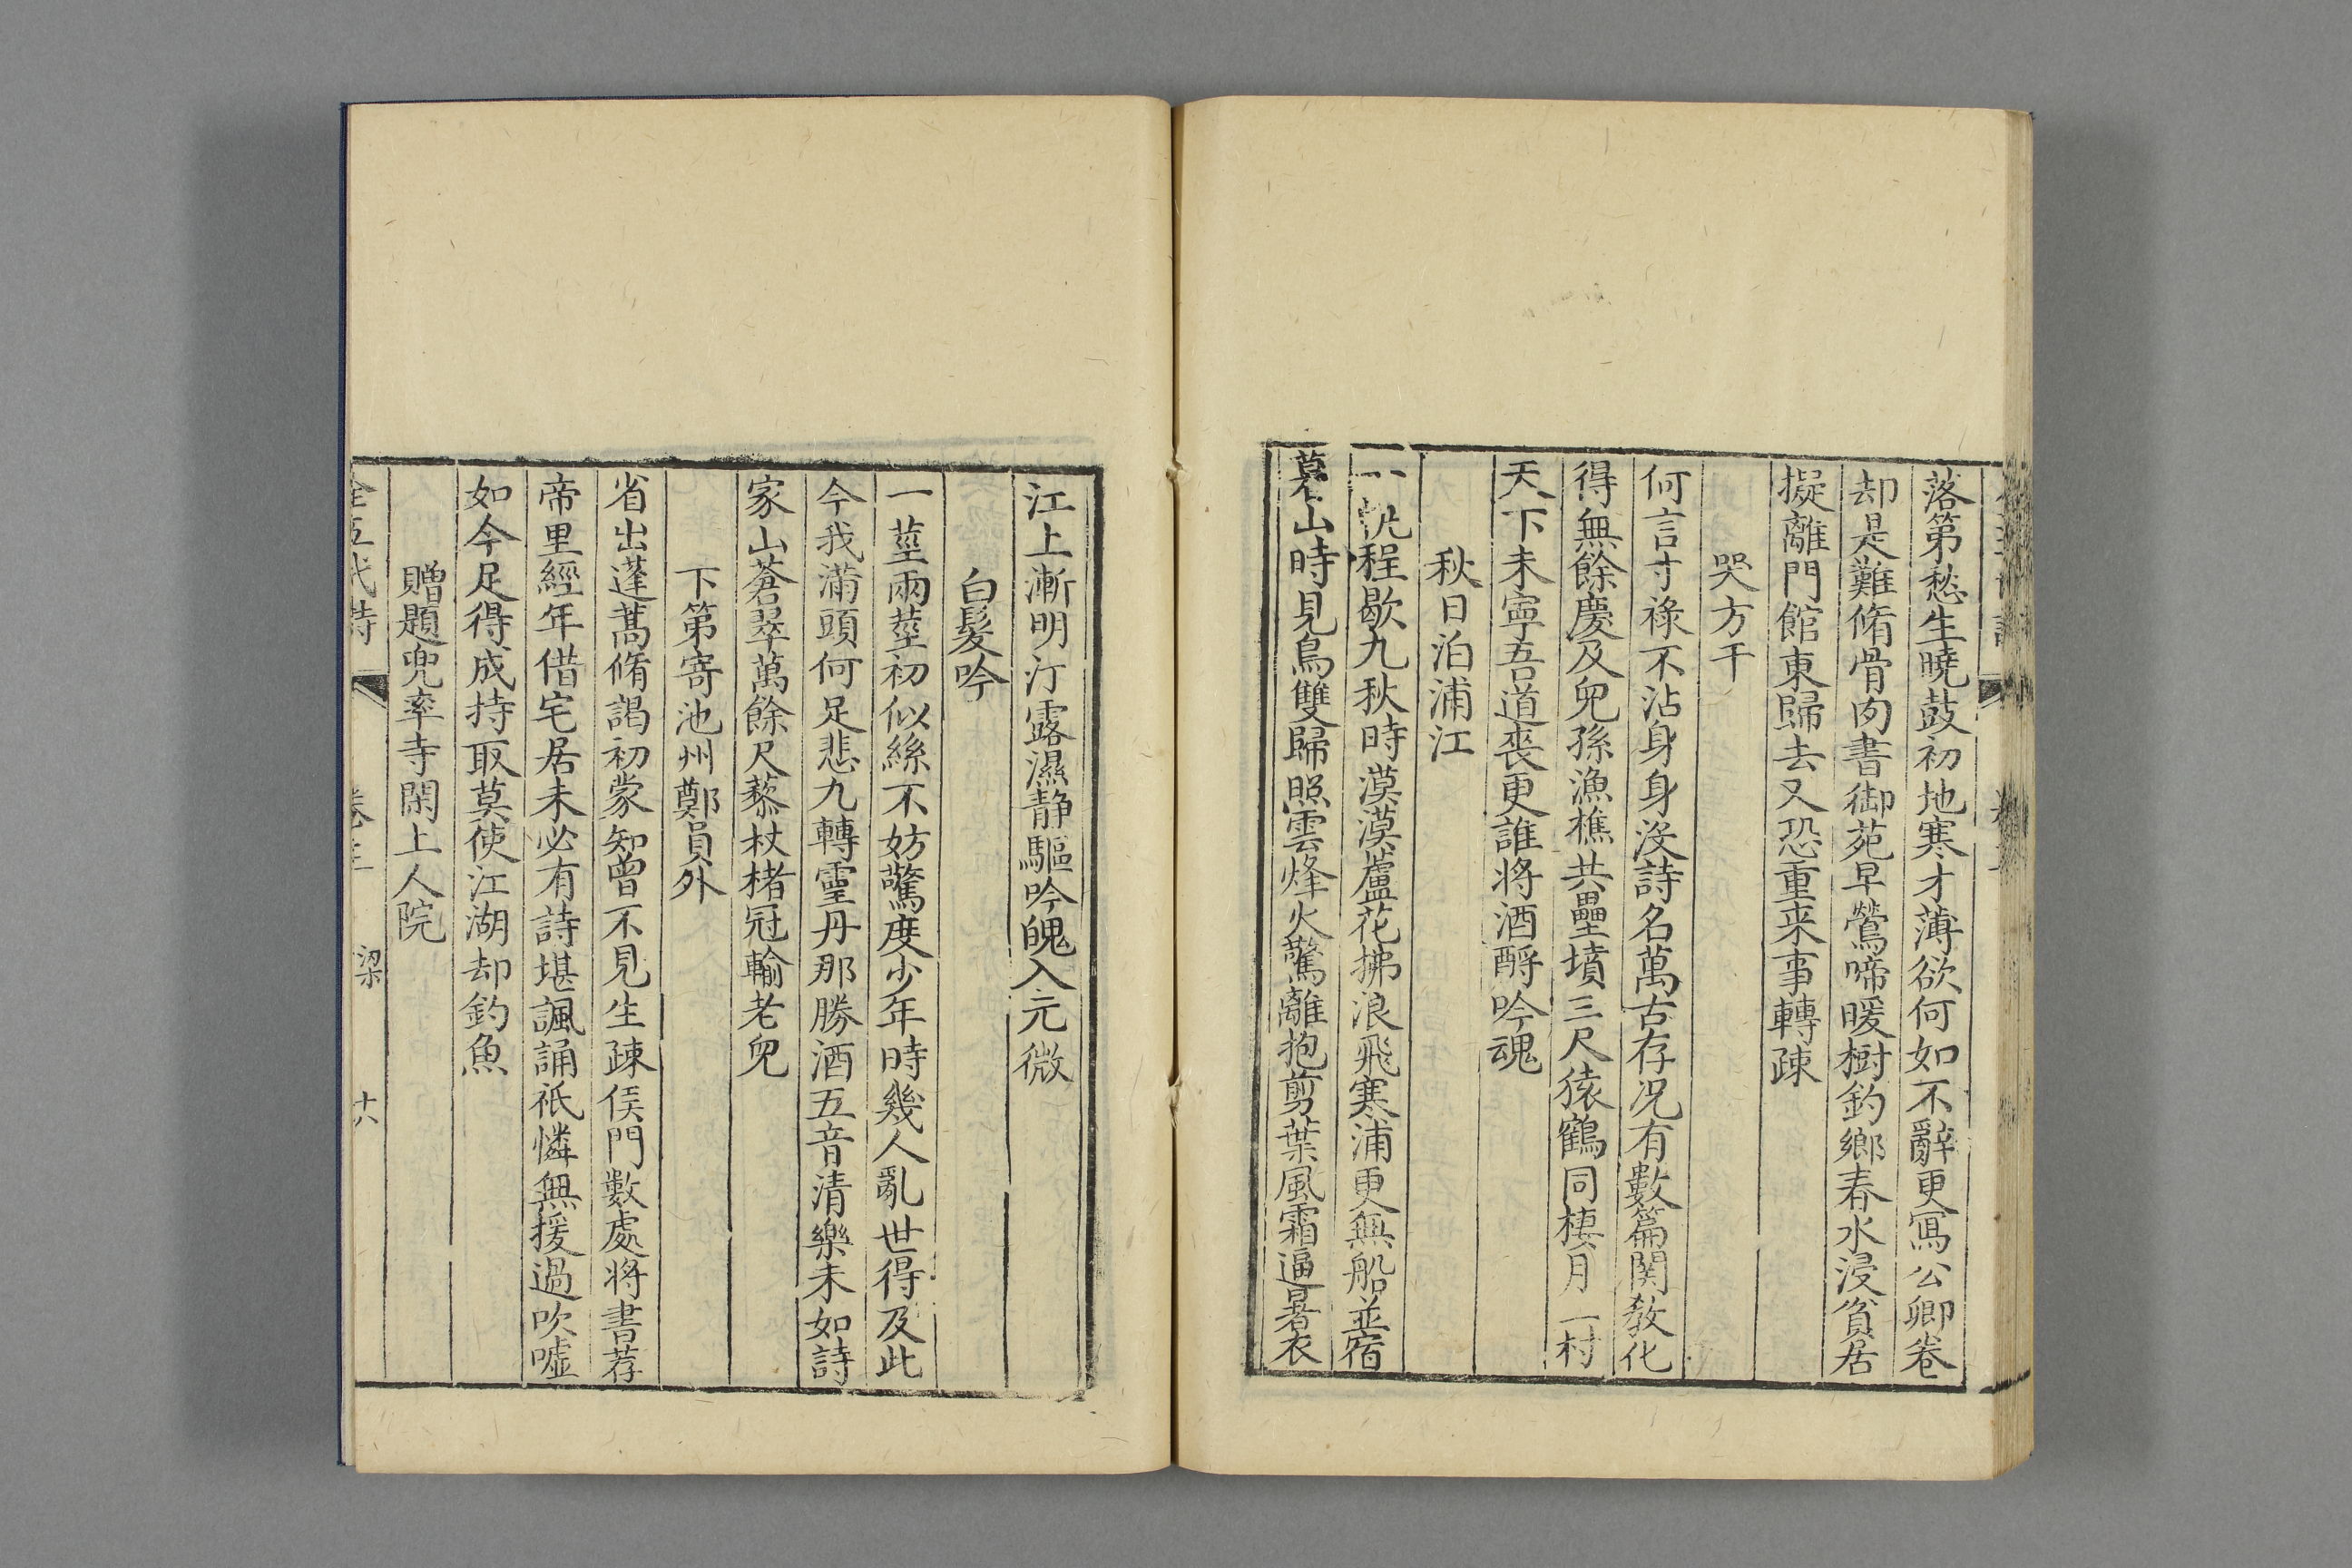 落第愁生曉鼓初地寒才薄欲何如不辭更寫公卿卷
却是難脩骨肉書御苑早鶯啼暖樹釣鄉春水浸貧居
擬離門館東歸去又恐重来事轉疎
哭方干
何言寸祿不沾身身沒詩名萬古存况有數篇関教化
得無餘慶及兒孫漁樵共壘墳三尺猿鶴同棲月一村
天下未寧吾道喪更誰将酒酹吟魂
秋日泊浦江
一帆程歇九秋時漠漠蘆花拂浪飛寒浦更無船並宿
暮山時見鳥雙歸照雲烽火驚離抱剪葉風霜逼暑衣
江上漸明汀露濕静驅吟魄入元微
白髮吟
一莖兩莖初似絲不妨驚度少年時幾人亂世得及此
今我滿頭何足悲九轉靈丹那勝酒五音清樂未如詩
家山蒼翠萬餘尺藜杖楮冠輸老兒
下第寄池州鄭員外
省出蓬蒿脩謁初蒙知曾不見生疎侯門數處将書荐
帝里經年借宅居未必有詩堪諷誦祇憐無援過吹噓
如今足得成持取莫使江湖却釣魚
贈題兜率寺閑上人院
全五代詩 卷三 梁 十六